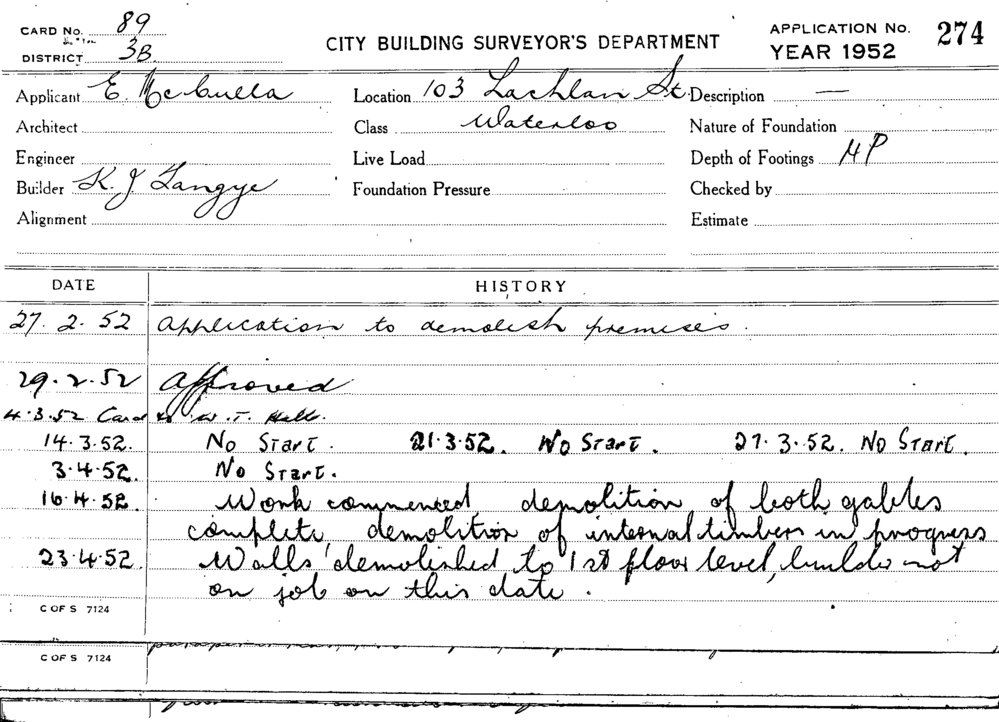 CARD No. 89
DISTRICT 3B.
CITY BUILDING SURVEYOR'S DEPARTMENT
APPLICATION No. 274
YEAR 1952
Applicant E. McCulla
Location 103 Lachlan St.
Description —
Architect
Class Waterloo
Nature of Foundation
Engineer
Live Load
Depth of Footings HP
Builder K. J. Langye
Foundation Pressure
Checked by
Alignment
Estimate
DATE HISTORY
27. 2. 52 Application to demolish premises.
29. 2. 52 Approved
4.3.52 Card to W. T. Halls.
14.3.52. No Start. 21.3.52. No Start. 27.3.52. No Start.
3.4.52. No Start.
16.4.52. Work commenced, demolition of both gables
complete, demolition of internal timbers in progress
23.4.52. Walls demolished to 1st floor level, builder not
on job on this date.
C OF S 7124
C OF S 7124